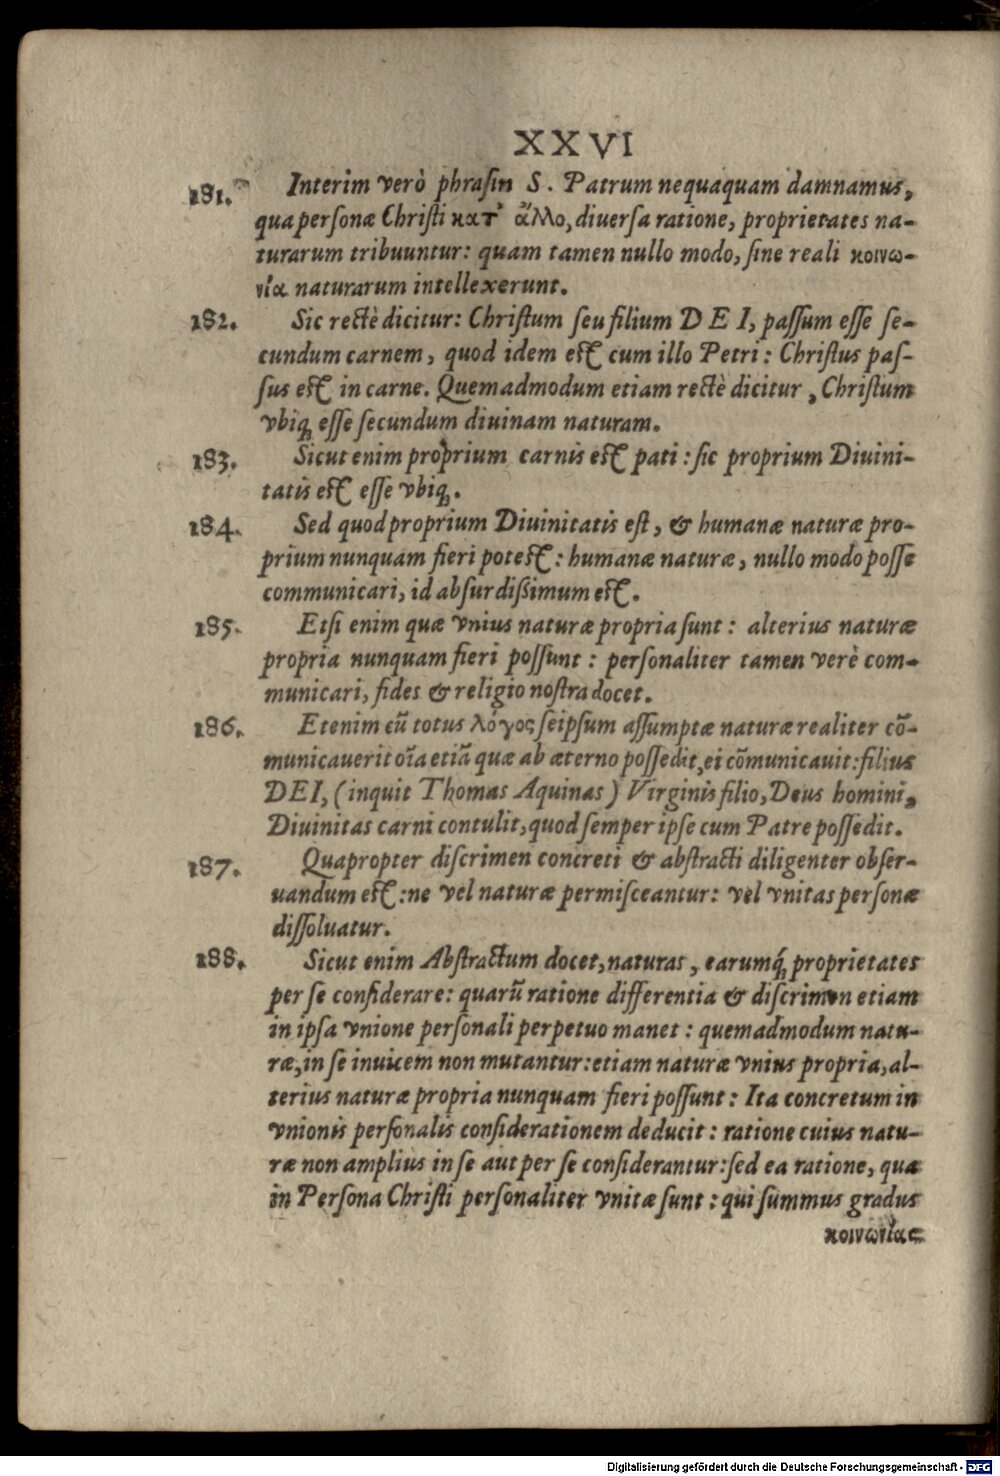 XXVI
181. Interim verò phrasin S. Patrum nequaquam damnamus,
qua personæ Christi κατ᾽ ἄλλο, diversa ratione, proprietates na-
turarum tribuuntur: quam tamen nullo modo, sine reali κοινω-
νία naturarum intellexerunt.
182. Sic rectè dicitur: Christum seu filium DEI, passum esse se-
cundum carnem, quod idem est cum illo Petri: Christus pas-
sus est in carne. Quemadmodum etiam rectè dicitur, Christum
vbiq; esse secundum diuinam naturam.
183. Sicut enim proprium carnis est pati: sic proprium Diuini-
tatis est esse vbiq;.
184. Sed quod proprium Diuinitatis est, & humanæ naturæ pro-
prium nunquam fieri potest: humanæ naturæ, nullo modo posse
communicari, id absurdissimum est.
185. Etsi enim quæ vnius naturæ propria sunt: alterius naturæ
propria nunquam fieri possunt: personaliter tamen verè com-
municari, fides & religio nostra docet.
186. Etenim cū totus λόγος seipsum assumptæ naturæ realiter cō-
municauerit oīa etiā quæ ab æterno possedit, ei cōmunicauit: filius
DEI, (inquit Thomas Aquinas) Virginis filio, Deus homini,
Diuinitas carni contulit, quod semper ipse cum Patre possedit.
187. Quapropter discrimen concreti & abstracti diligenter obser-
uandum est: ne vel naturæ permisceantur: vel vnitas personæ
dissoluatur.
188. Sicut enim Abstractum docet, naturas, earumq́; proprietates
per se considerare: quarū ratione differentia & discrimen etiam
in ipsa vnione personali perpetuo manet: quemadmodum natu-
ræ, in se inuicem non mutantur: etiam naturæ vnius propria, al-
terius naturæ propria nunquam fieri possunt: Ita concretum in
vnionis personalis considerationem deducit: ratione cuius natu-
ræ non amplius in se aut per se considerantur: sed ea ratione, qua
in Persona Christi personaliter vnitæ sunt: qui summus gradus
κοινωνίας
Digitalisierung gefördert durch die Deutsche Forschungsgemeinschaft - DFG